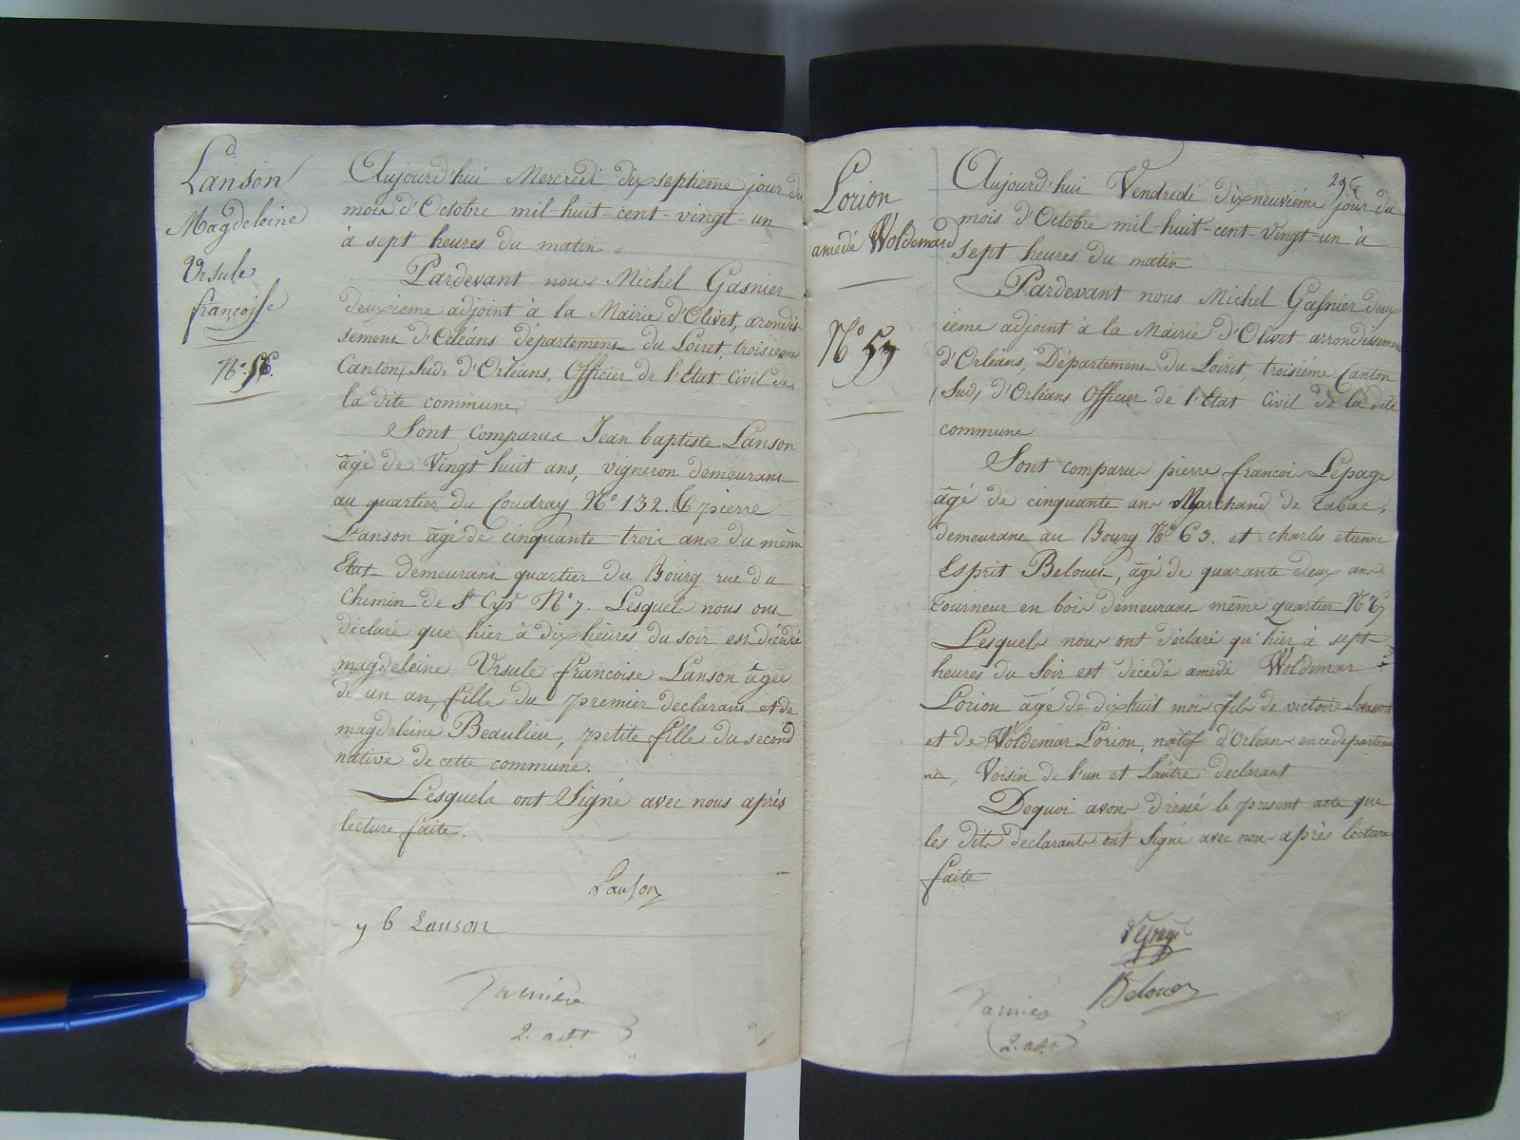 Lanson
Magdeleine
Ursule
françoise
N° 56.
Aujourd'hui Mercredi dix septieme jour du
mois d'Octobre mil-huit-cent-vingt-un
à sept heures du matin
Pardevant nous Michel Gasnier
deuxieme adjoint à la Mairie d'Olivet, arondis-
sement d'Orléans département du Loiret, troisieme
Canton, Sud, d'Orléans, Officier de l'Etat Civil de
la dite commune,
Sont Comparus Jean baptiste Lanson
âgé de Vingt huit ans, vigneron demeurant
au quartier du Coudray N° 132. & pierre
Lanson âgé de cinquante trois ans du même
Etat demeurant quartier du Bourg rue du
Chemin de St Cyr N° 7. Lesquels nous ont
déclaré que hier à dix heures du soir est décédé
magdeleine Ursule françoise Lanson âgée
de un an, fille du premier declarant et de
magdeleine Beaulieu, petite fille du second
native de cette commune.
Lesquels ont Signé avec nous après
lecture faite.
Lanson
y b Lanson
2. adt
Lorion
amedé Woldemard
N° 57
Aujourd'hui Vendredi dixneuvième jour du
mois d'Octobre mil-huit-cent-vingt-un à
sept heures du matin
Pardevant nous Michel Gasnier deux
ieme adjoint à la Mairie d'Olivet arrondissement
d'Orléans, Département du Loiret troisiéme Canton
(Sud) d'Orléans Officier de l'Etat Civil de la dite
commune
Sont comparus pierre francois Lepage
âgé de cinquante ans Marchand de tabac,
demeurant au Bourg N° 63. et charles etienne
Esprit Belouet, âgé de quarante deux ans
tourneur en bois demeurant même quartier N°
Lesquels nous ont déclaré qu'hier à sept
heures du Soir est décédé amedé Woldemar
Lorion âgé de dixhuit mois fils de victoire Lanson
et de Woldemar Lorion, natif d'Orleans en ce departem
nt, Voisin de l'un et L'autre declarant
Dequoi avons dressé le present acte que
les dits declarants ont Signé avec nous après lecture
faite
Belouet
2. adt